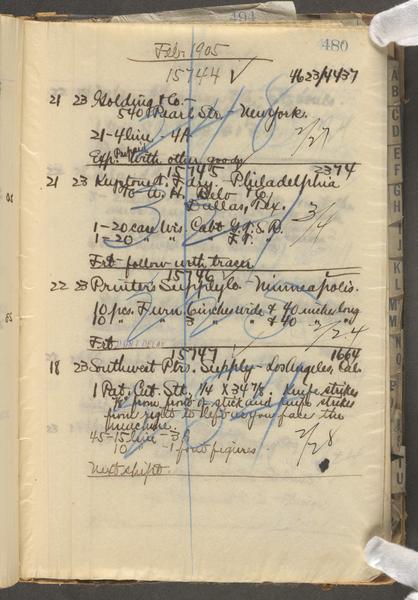 494
480
Feb. 1905
15744 √ 4623/4437
21 23 Golding & Co.
540 Pearl Str. New York.
21-4line 4A
2/27
Exp. Prepaid With other goods
15745 2374
21 23 Keystone T. Fdry. Philadelphia
To A. H. Belo & Co.
Dallas, Tex.
3/4
1-20 case Wis. Cabt
1-20 " " "
Frt - follow with tracer
15746 √
22 23 Printers Supply Co - Minneapolis.
10 pcs. Furn 6 inches wide & 40 inches long
10 " " 3 " " & 40 " "
2/24
Frt
15747 1664
18 23 Southwest Ptrs. Supply - Los Angeles, Cal.
1 Pat. Cut. Stk. 1/4 x 34 7/8. Knife strikes
from front of stick and knife strikes
from right to left as you face the
machine.
45-15 line
10 " - 1 four figures
2/28
Next shipt.
A
B
C
D
E
F
G
H
I
J
K
L
M
N
O
P
Q
R
S
T
U